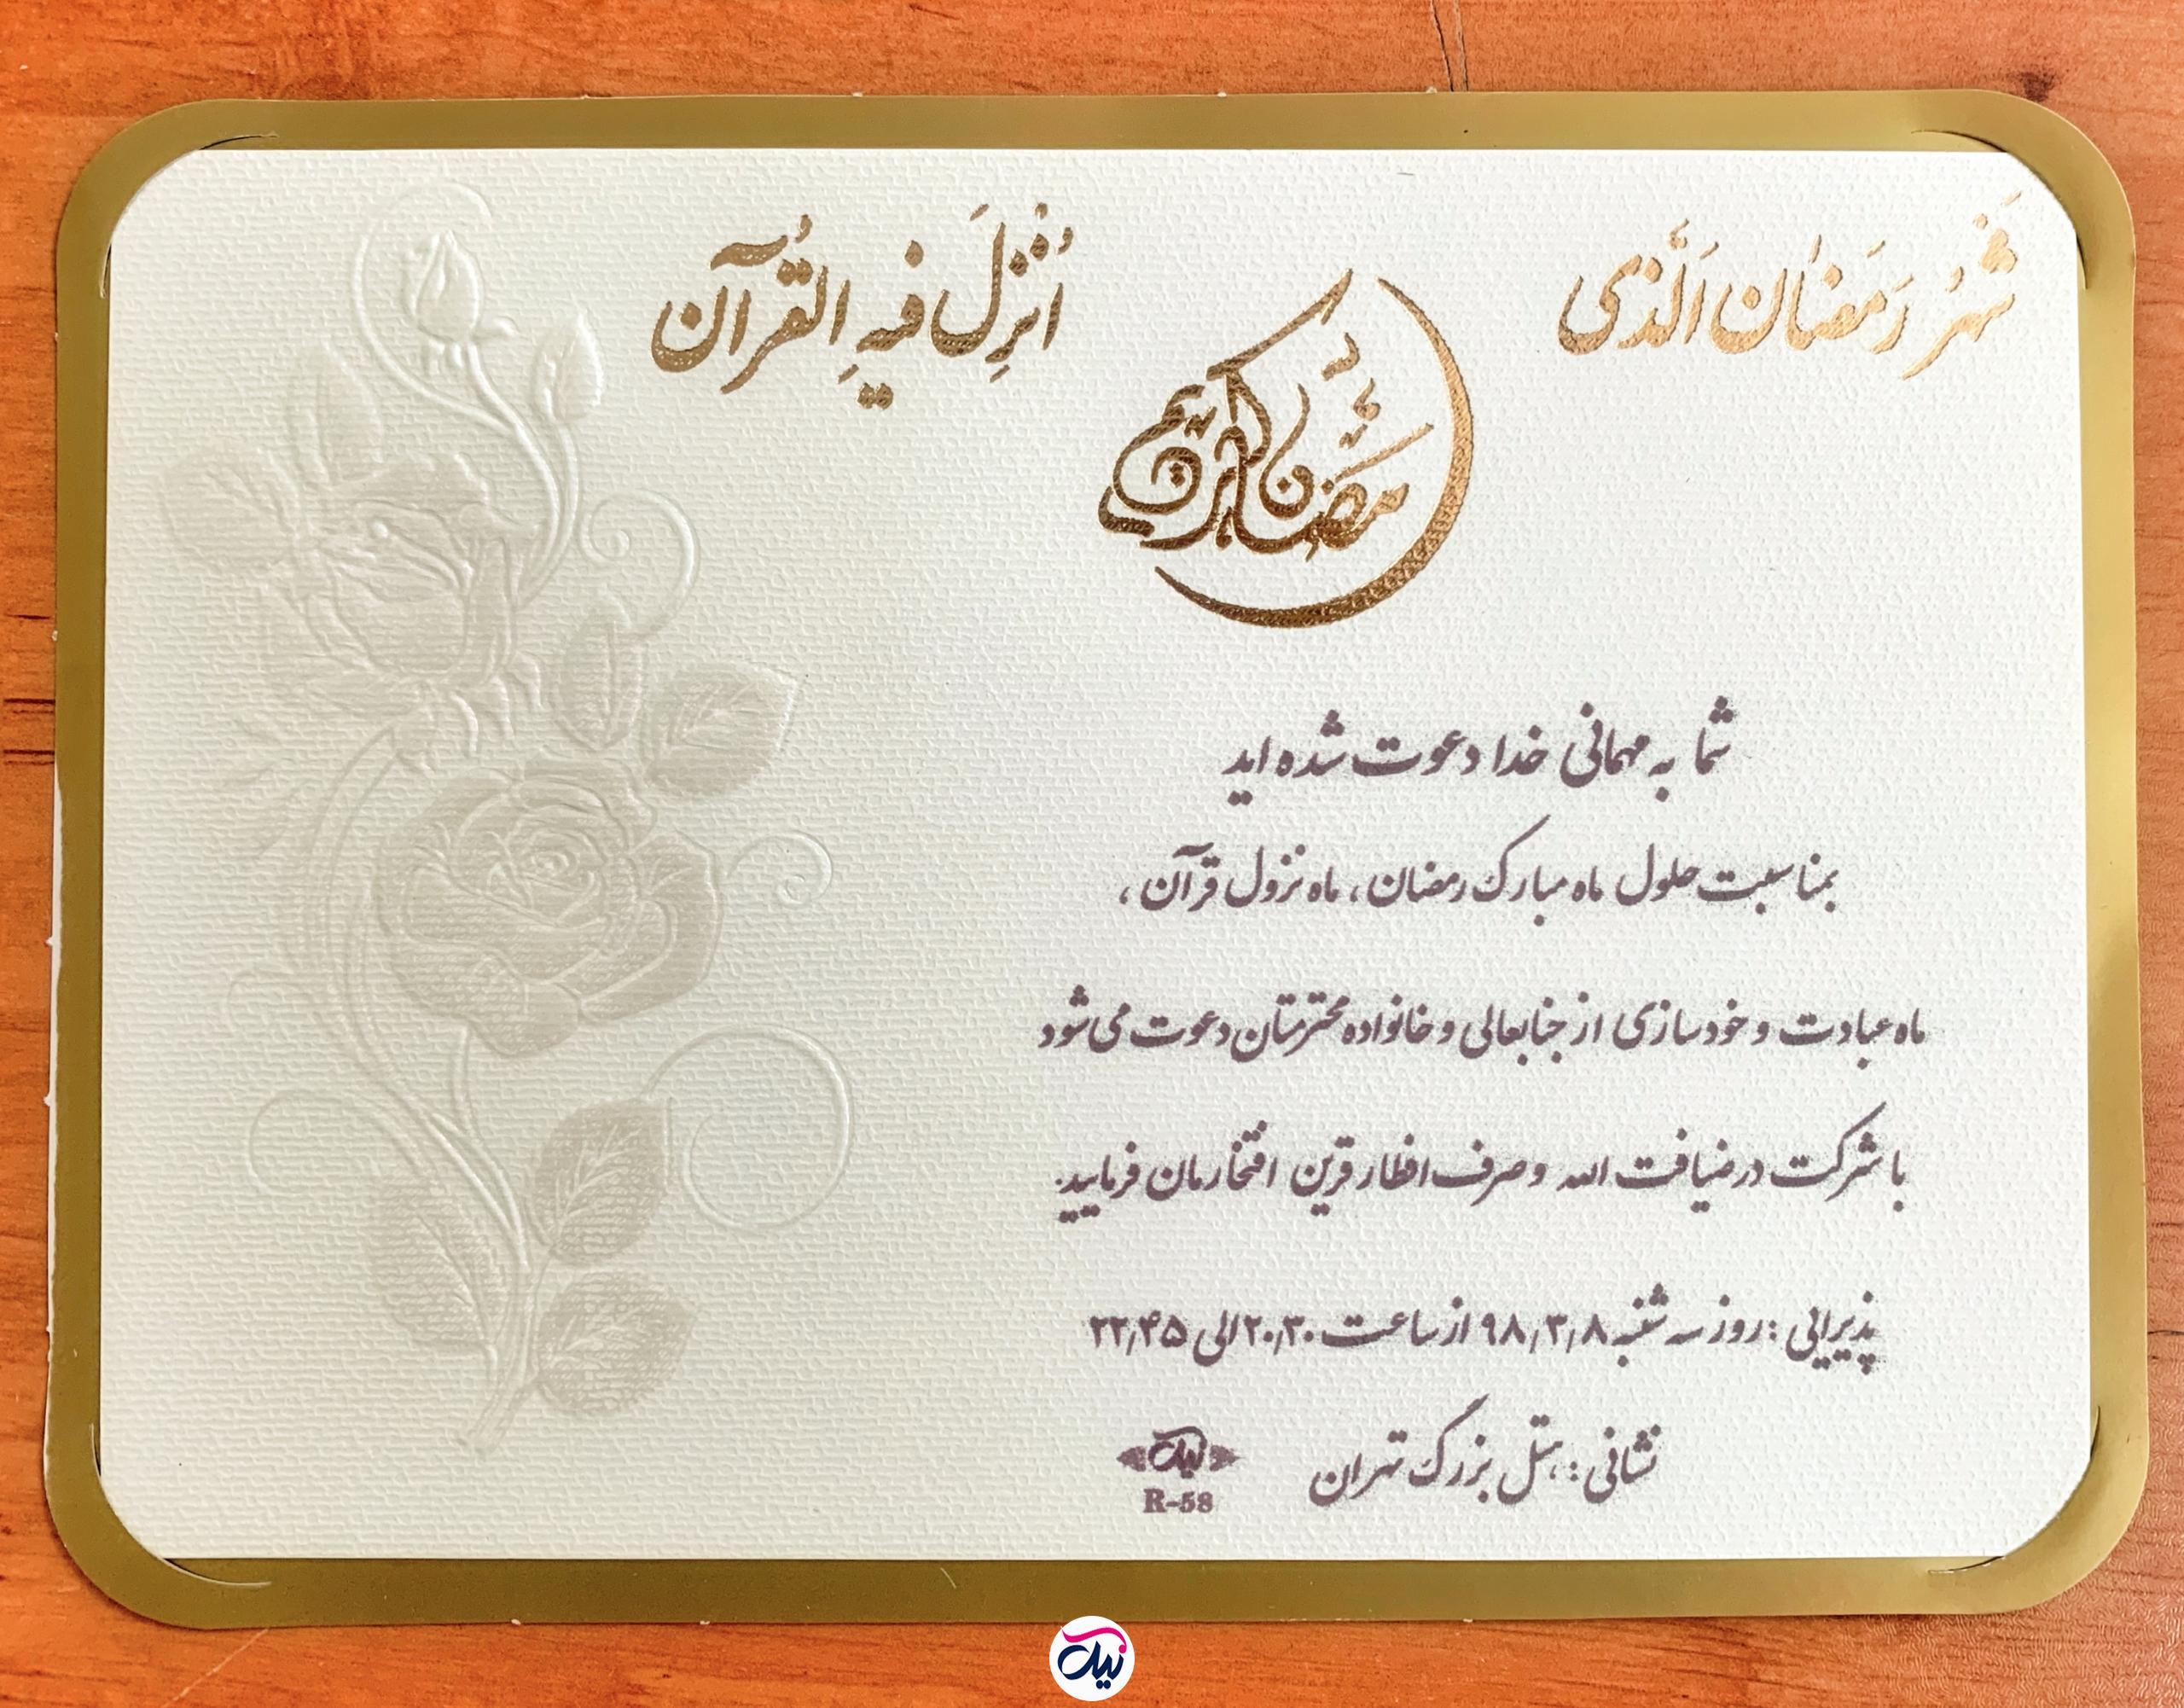 شَهْرُ رَمَضٰان اَلَّذی
اُنْزِلَ فیهِ القُرآن
رمضان کریم
شما به مهمانی خدا دعوت شده اید
بمناسبت حلول ماه مبارک رمضان، ماه نزول قرآن،
ماه عبادت و خودسازی از جنابعالی و خانواده محترمتان دعوت می‌شود
با شرکت در ضیافت الله و صرف افطار قرین افتخارمان فرمایید.
پذیرایی : روز سه شنبه ۹۸/۳/۸ از ساعت ۲۰/۳۰ الی ۲۲/۴۵
نشانی : هتل بزرگ تهران
نیک
R-58
نیک